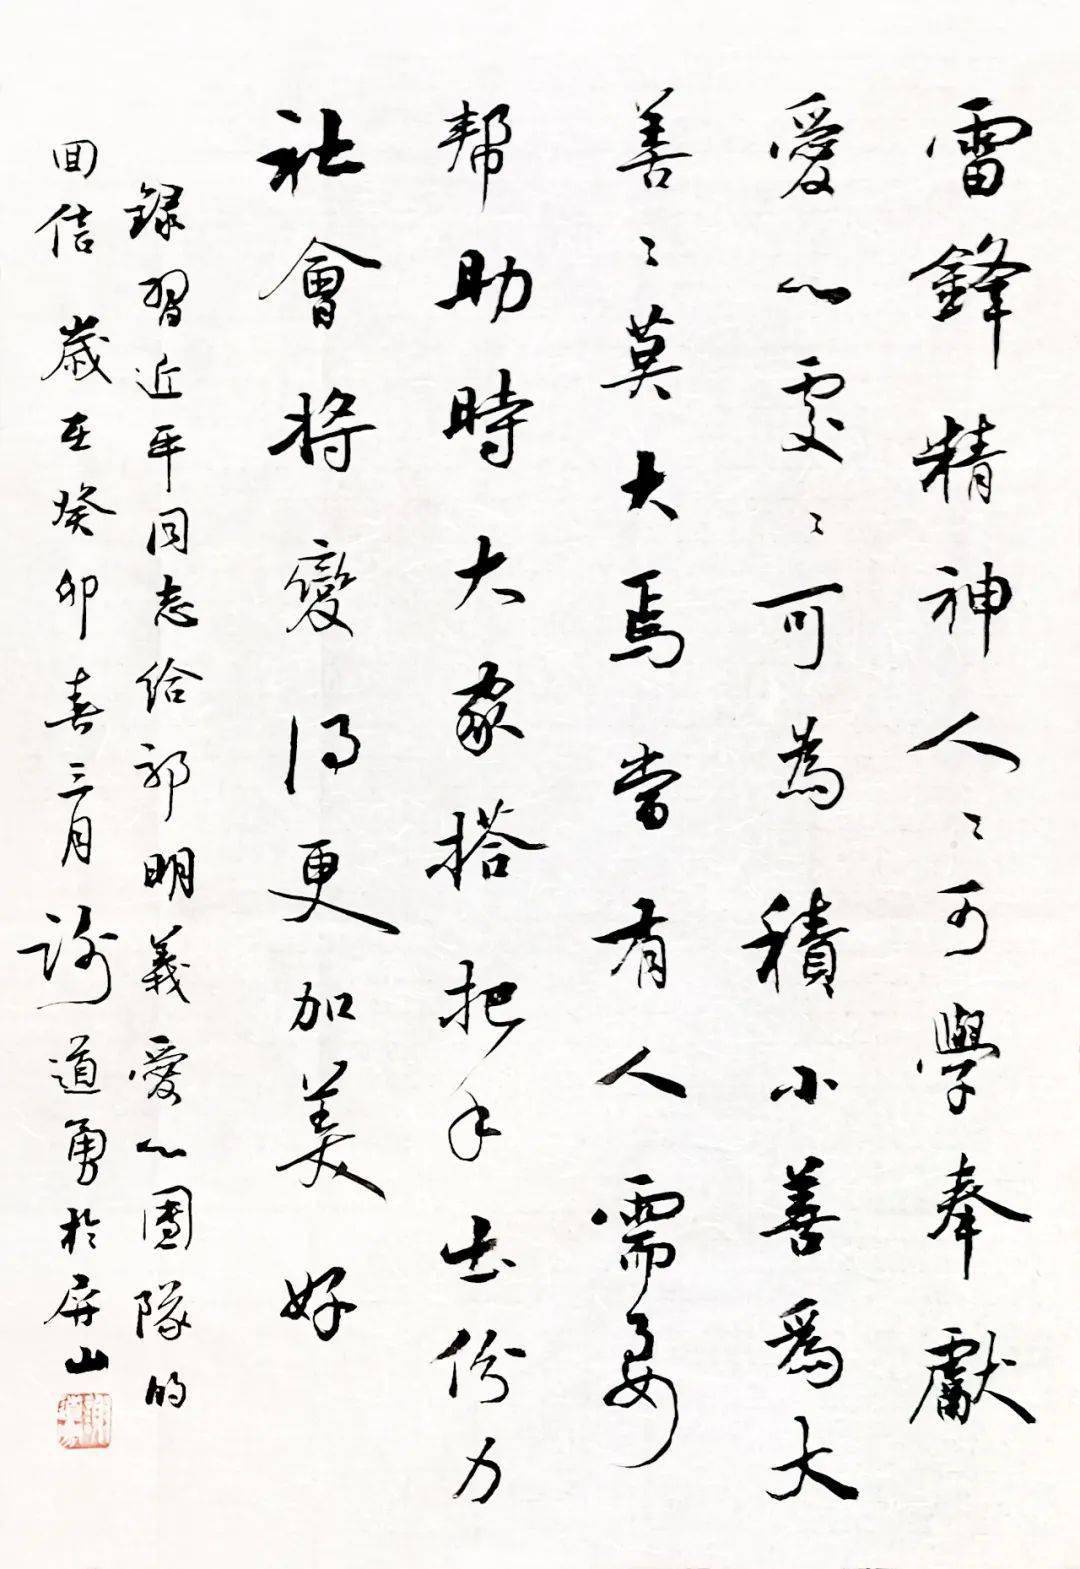 雷鋒精神人〻可學奉獻
愛心處〻可為積小善為大
善〻莫大焉當有人需要
帮助時大家搭把手出份力
社會将變得更加美好
錄習近平同志給郭明義愛心團隊的
回信 歲在癸卯春三月 謝道勇於屏山